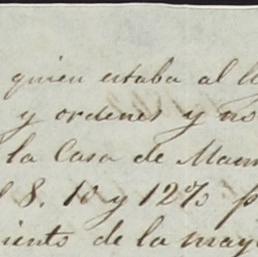 quien estaba al
y ordenes y no
la Casa de
8. 10 y 12% p
miento de la may